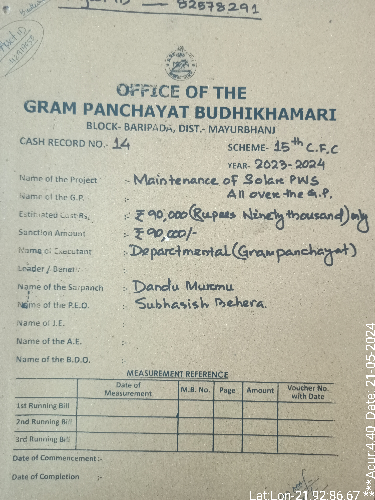 82578291
OFFICE OF THE
GRAM PANCHAYAT BUDHIKHAMARI
BLOCK- BARIPADA, DIST.- MAYURBHANJ
CASH RECORD NO.- 14 SCHEME- 15th C.F.C
YEAR- 2023-2024
Name of the Project :- Maintenance of Solar PWS
Name of the G.P. All over the G.P.
Estimated Cost Rs. :- ₹90,000 (Rupees Ninety thousand) only
Sanction Amount :- ₹90,000/-
Name of Executant :- Departmental (Grampanchayat)
Leader /
Name of the Sarpanch :- Dandu Murmu
Name of the P.E.O. :- Subhasish Behera.
Name of J.E. :-
Name of the A.E. :-
Name of the B.D.O. :-
MEASUREMENT REFERENCE
Date of Measurement M.B. No. Page Amount Voucher No. with Date
1st Running Bill
2nd Running Bill
3rd Running Bill
Date of Commencement:-
Date of Completion :-
Lat:Lon-21.92:86.67
***Acur:4.40 Date, 21-05-2024